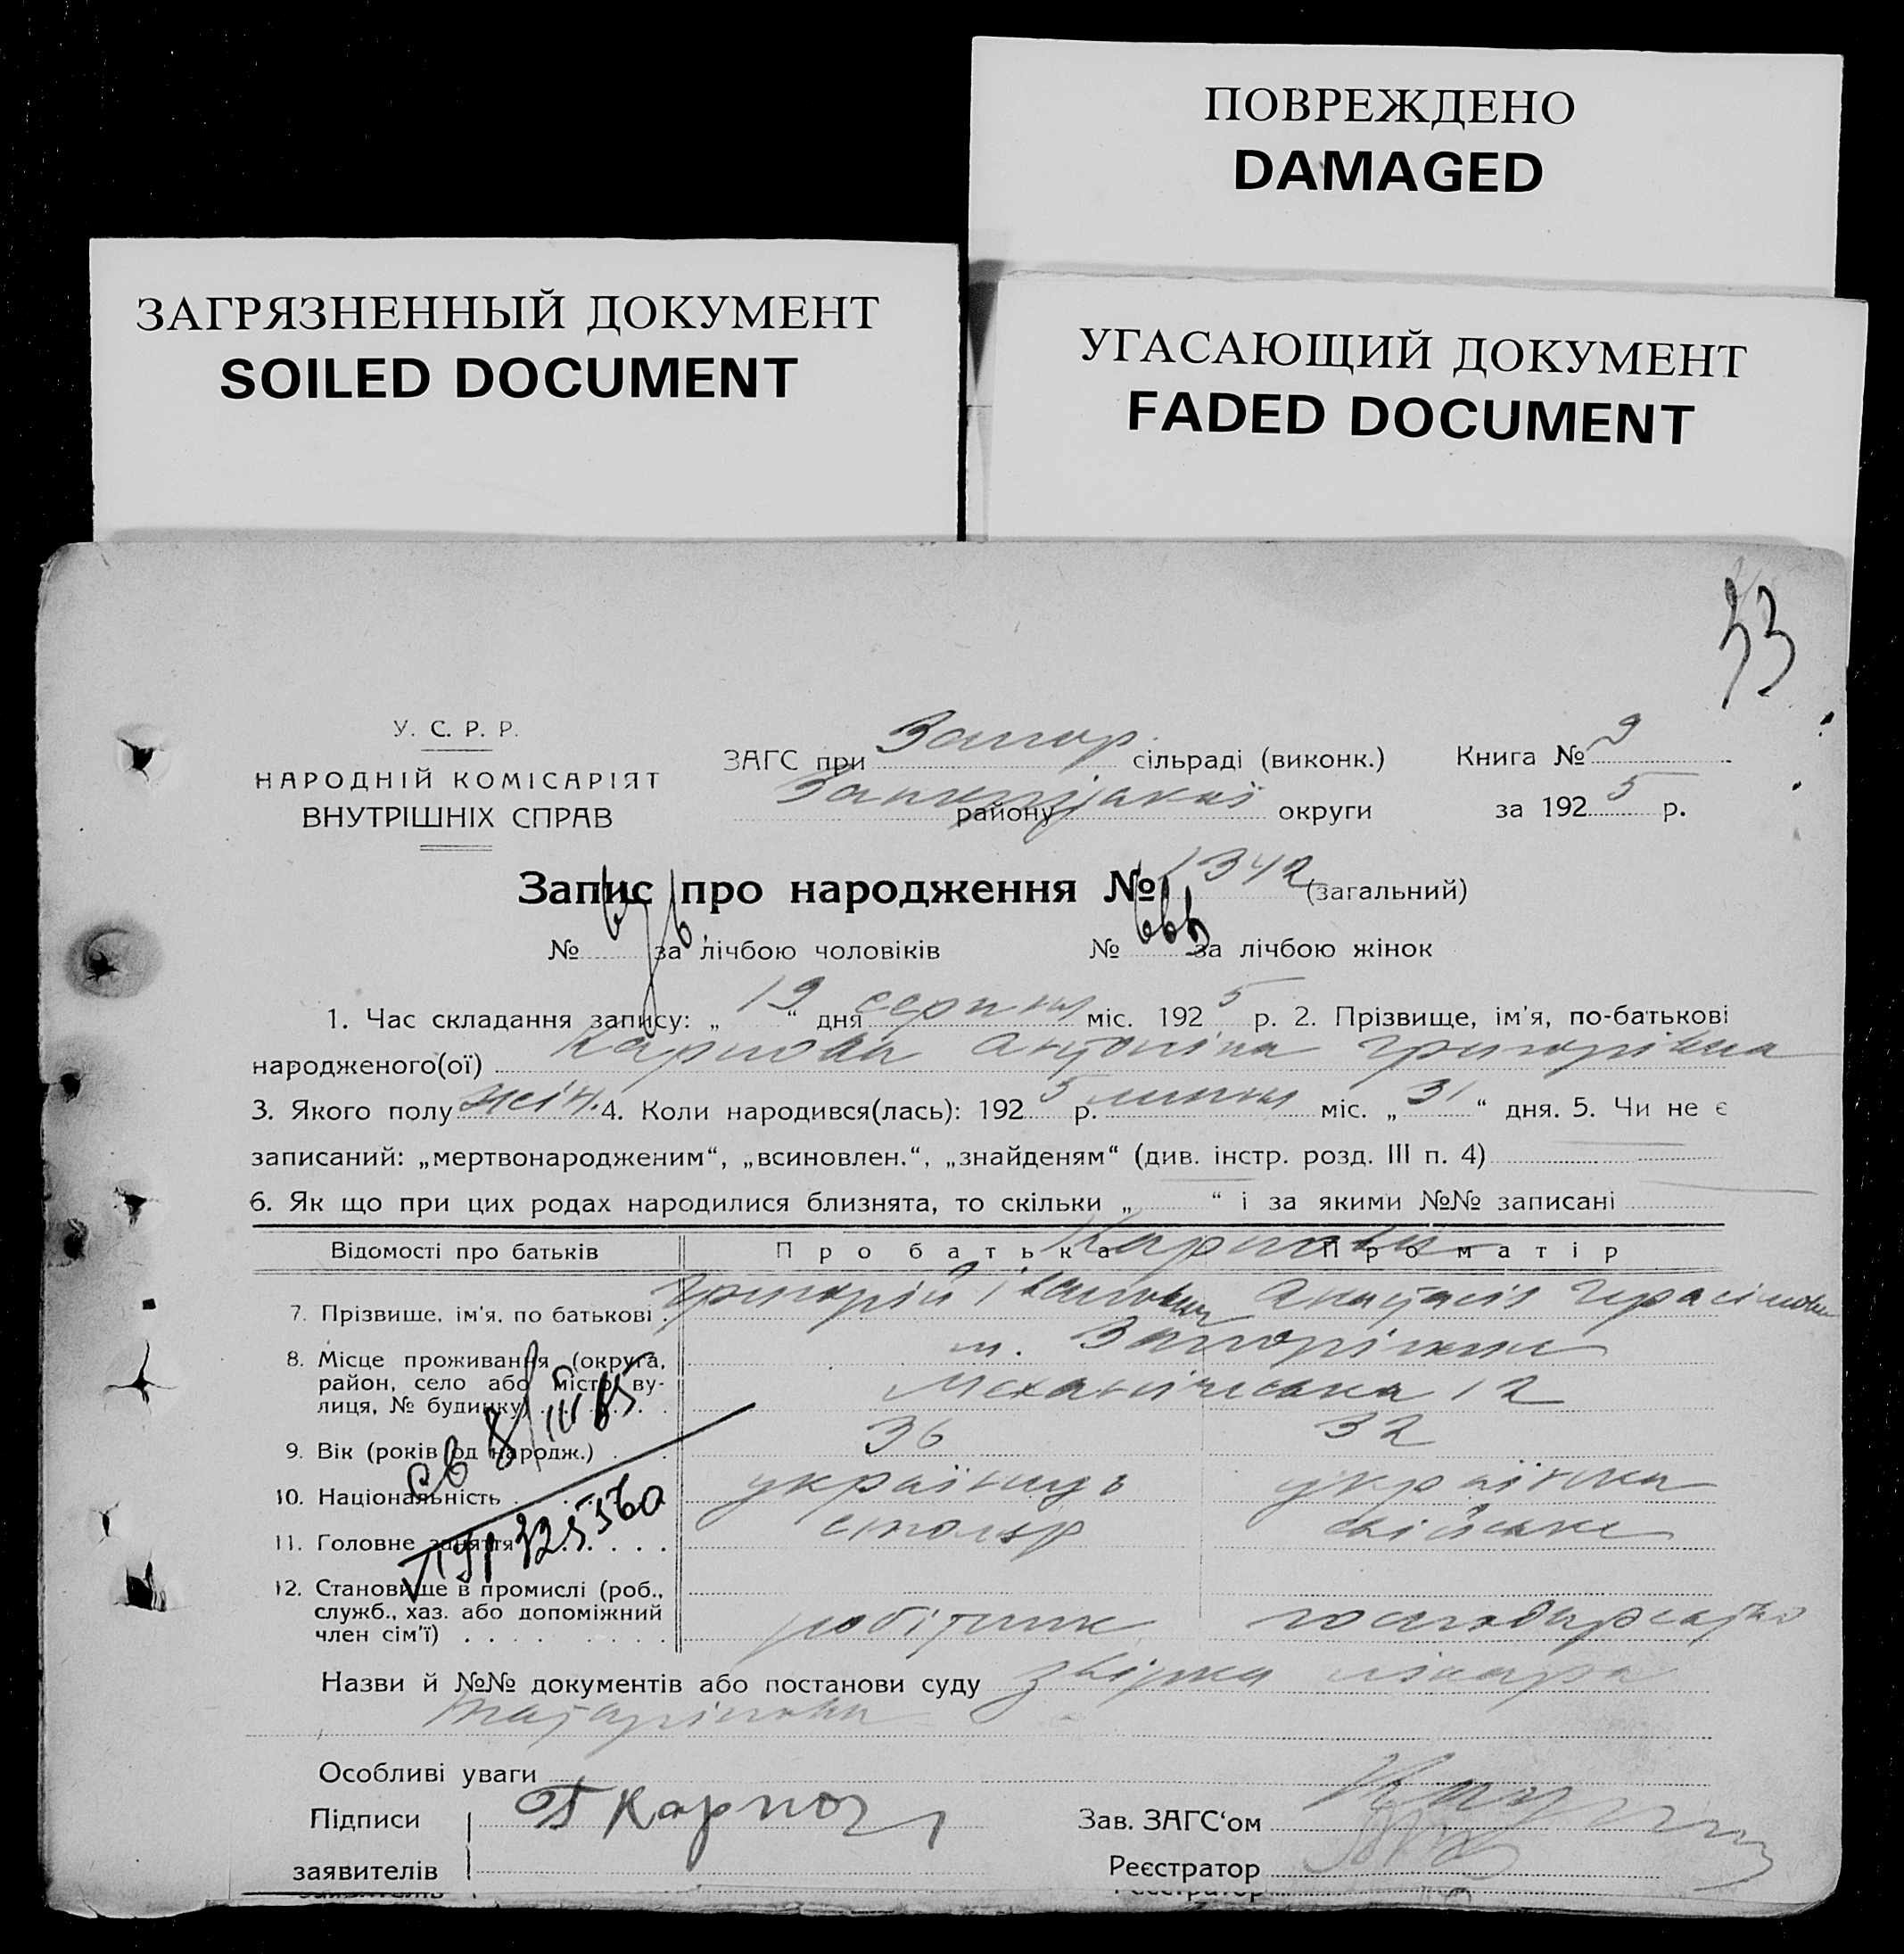 ПОВРЕЖДЕНО
DAMAGED
ЗАГРЯЗНЕННЫЙ ДОКУМЕНТ
SOILED DOCUMENT
УГАСАЮЩИЙ ДОКУМЕНТ
FADED DOCUMENT
53
У. С. Р. Р.
НАРОДНІЙ КОМІСАРІЯТ
ВНУТРІШНІХ СПРАВ
ЗАГС при Запор. сільраді (виконк.) Книга № 9
району округи за 1925 р.
Запис про народження № 1342 (загальний)
№ за лічбою чоловіків № 666 за лічбою жінок
1. Час складання запису: „19“ дня серпня міс. 1925 р. 2. Прізвище, ім'я, по-батькові
народженого(ої) Карпова Антоніна Григорівна
3. Якого полу жін. 4. Коли народився(лась): 1925 р. липня міс. „31“ дня. 5. Чи не є
записаний: „мертвонародженим“, „всиновлен.“, „знайденям“ (див. інстр. розд. III п. 4)
6. Як що при цих родах народилися близнята, то скільки „ “ і за якими №№ записані
Відомості про батьків Про батька Про матір
Карпови
7. Прізвище, ім'я, по батькові . Григорій Іванович Анастасія Герасімовна
8. Місце проживання (округа, район, село або місто, вулиця, № будинку) м. Запоріжжя
Механічна 12
9. Вік (років од народж.) 36 32
10. Національність українець українка
11. Головне заняття столяр хатнє
12. Становище в промислі (роб., служб., хаз. або допоміжний член сім'ї) робітник господарство
св 8/III 65
325360
Назви й №№ документів або постанови суду лікаря
Особливі уваги
Підписи Г Карпов Зав. ЗАГС‘ом
заявителів Реєстратор